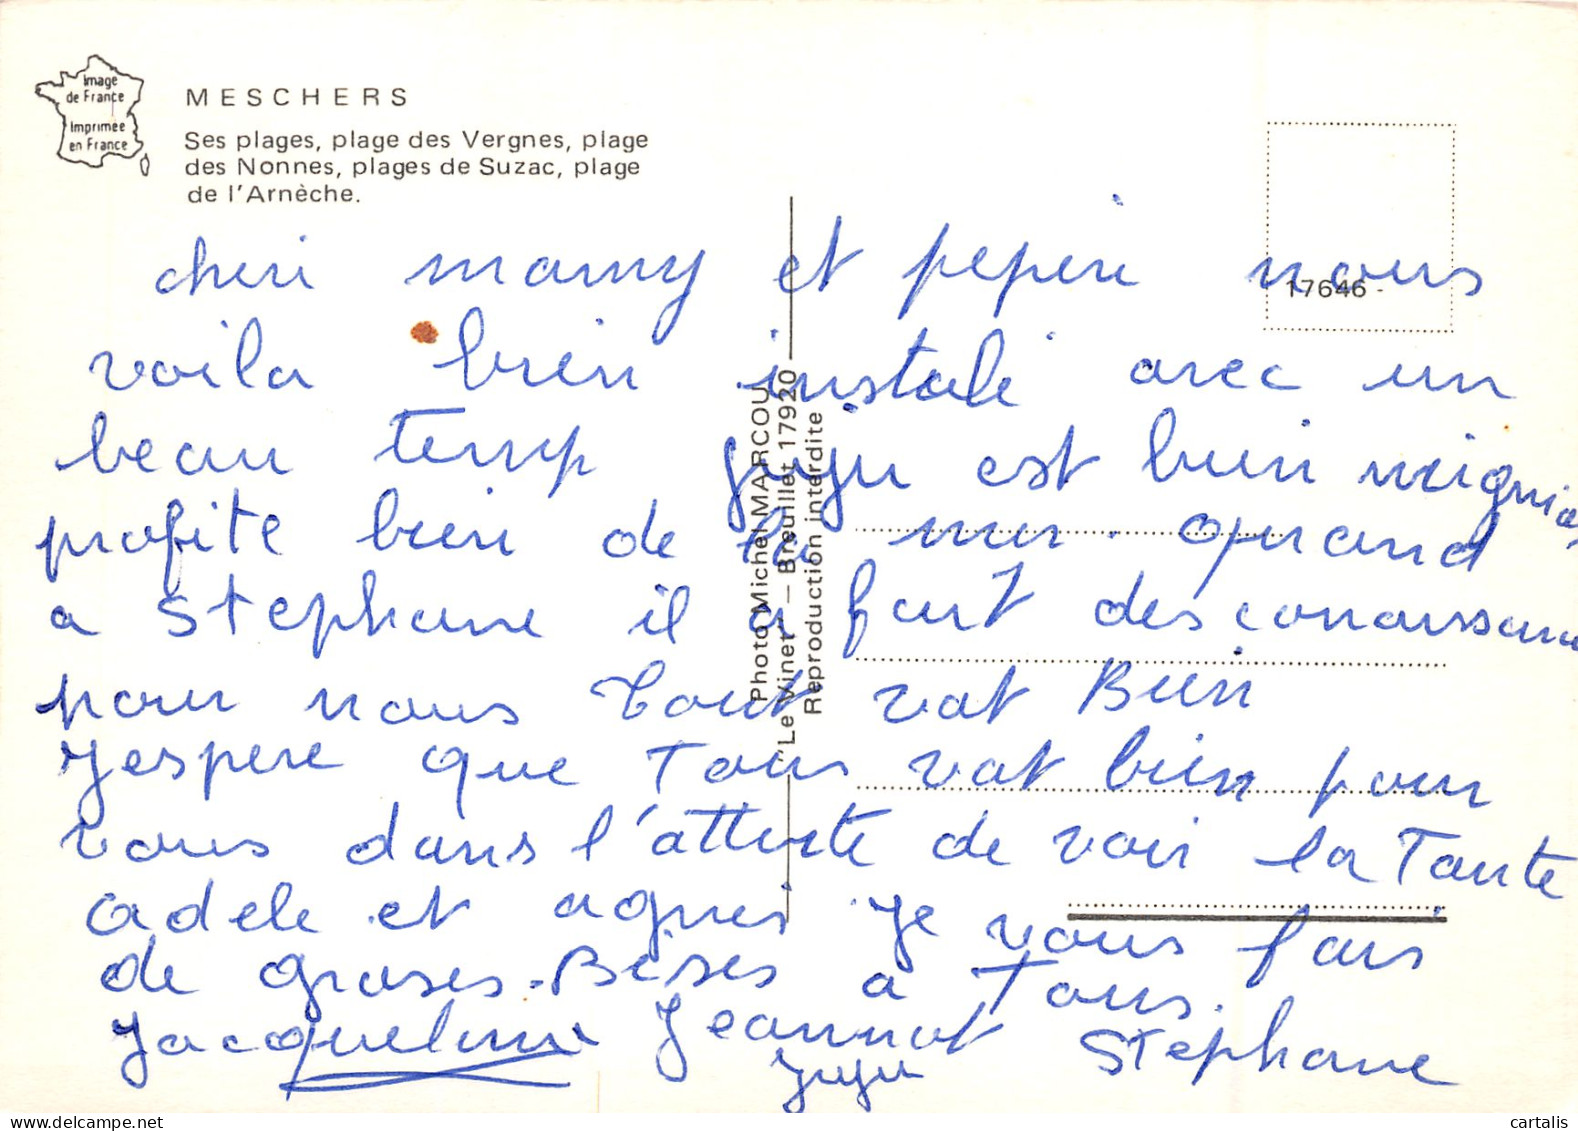 Image
de France
Imprimée
en France
MESCHERS
Ses plages, plage des Vergnes, plage
des Nonnes, plages de Suzac, plage
de l'Arnèche.
17646 -
Photo Michel MARCOU
"Le Vinet" — Breuillet 17920
Reproduction interdite
cheri mamy et pepere nous
voila bien instalé avec un
beau temp juju est bien mignion
profite bien de la mer. quand
a stephane il a fait des conaissance
pour nous tout vat Bien
J'espere que Tous vat bien pour
vous dans l'attente de voir la Tante
adele et agnes je vous fais
de groses. Bises a Tous.
Jacqueline Jeannot Stephane
juju
cartalis